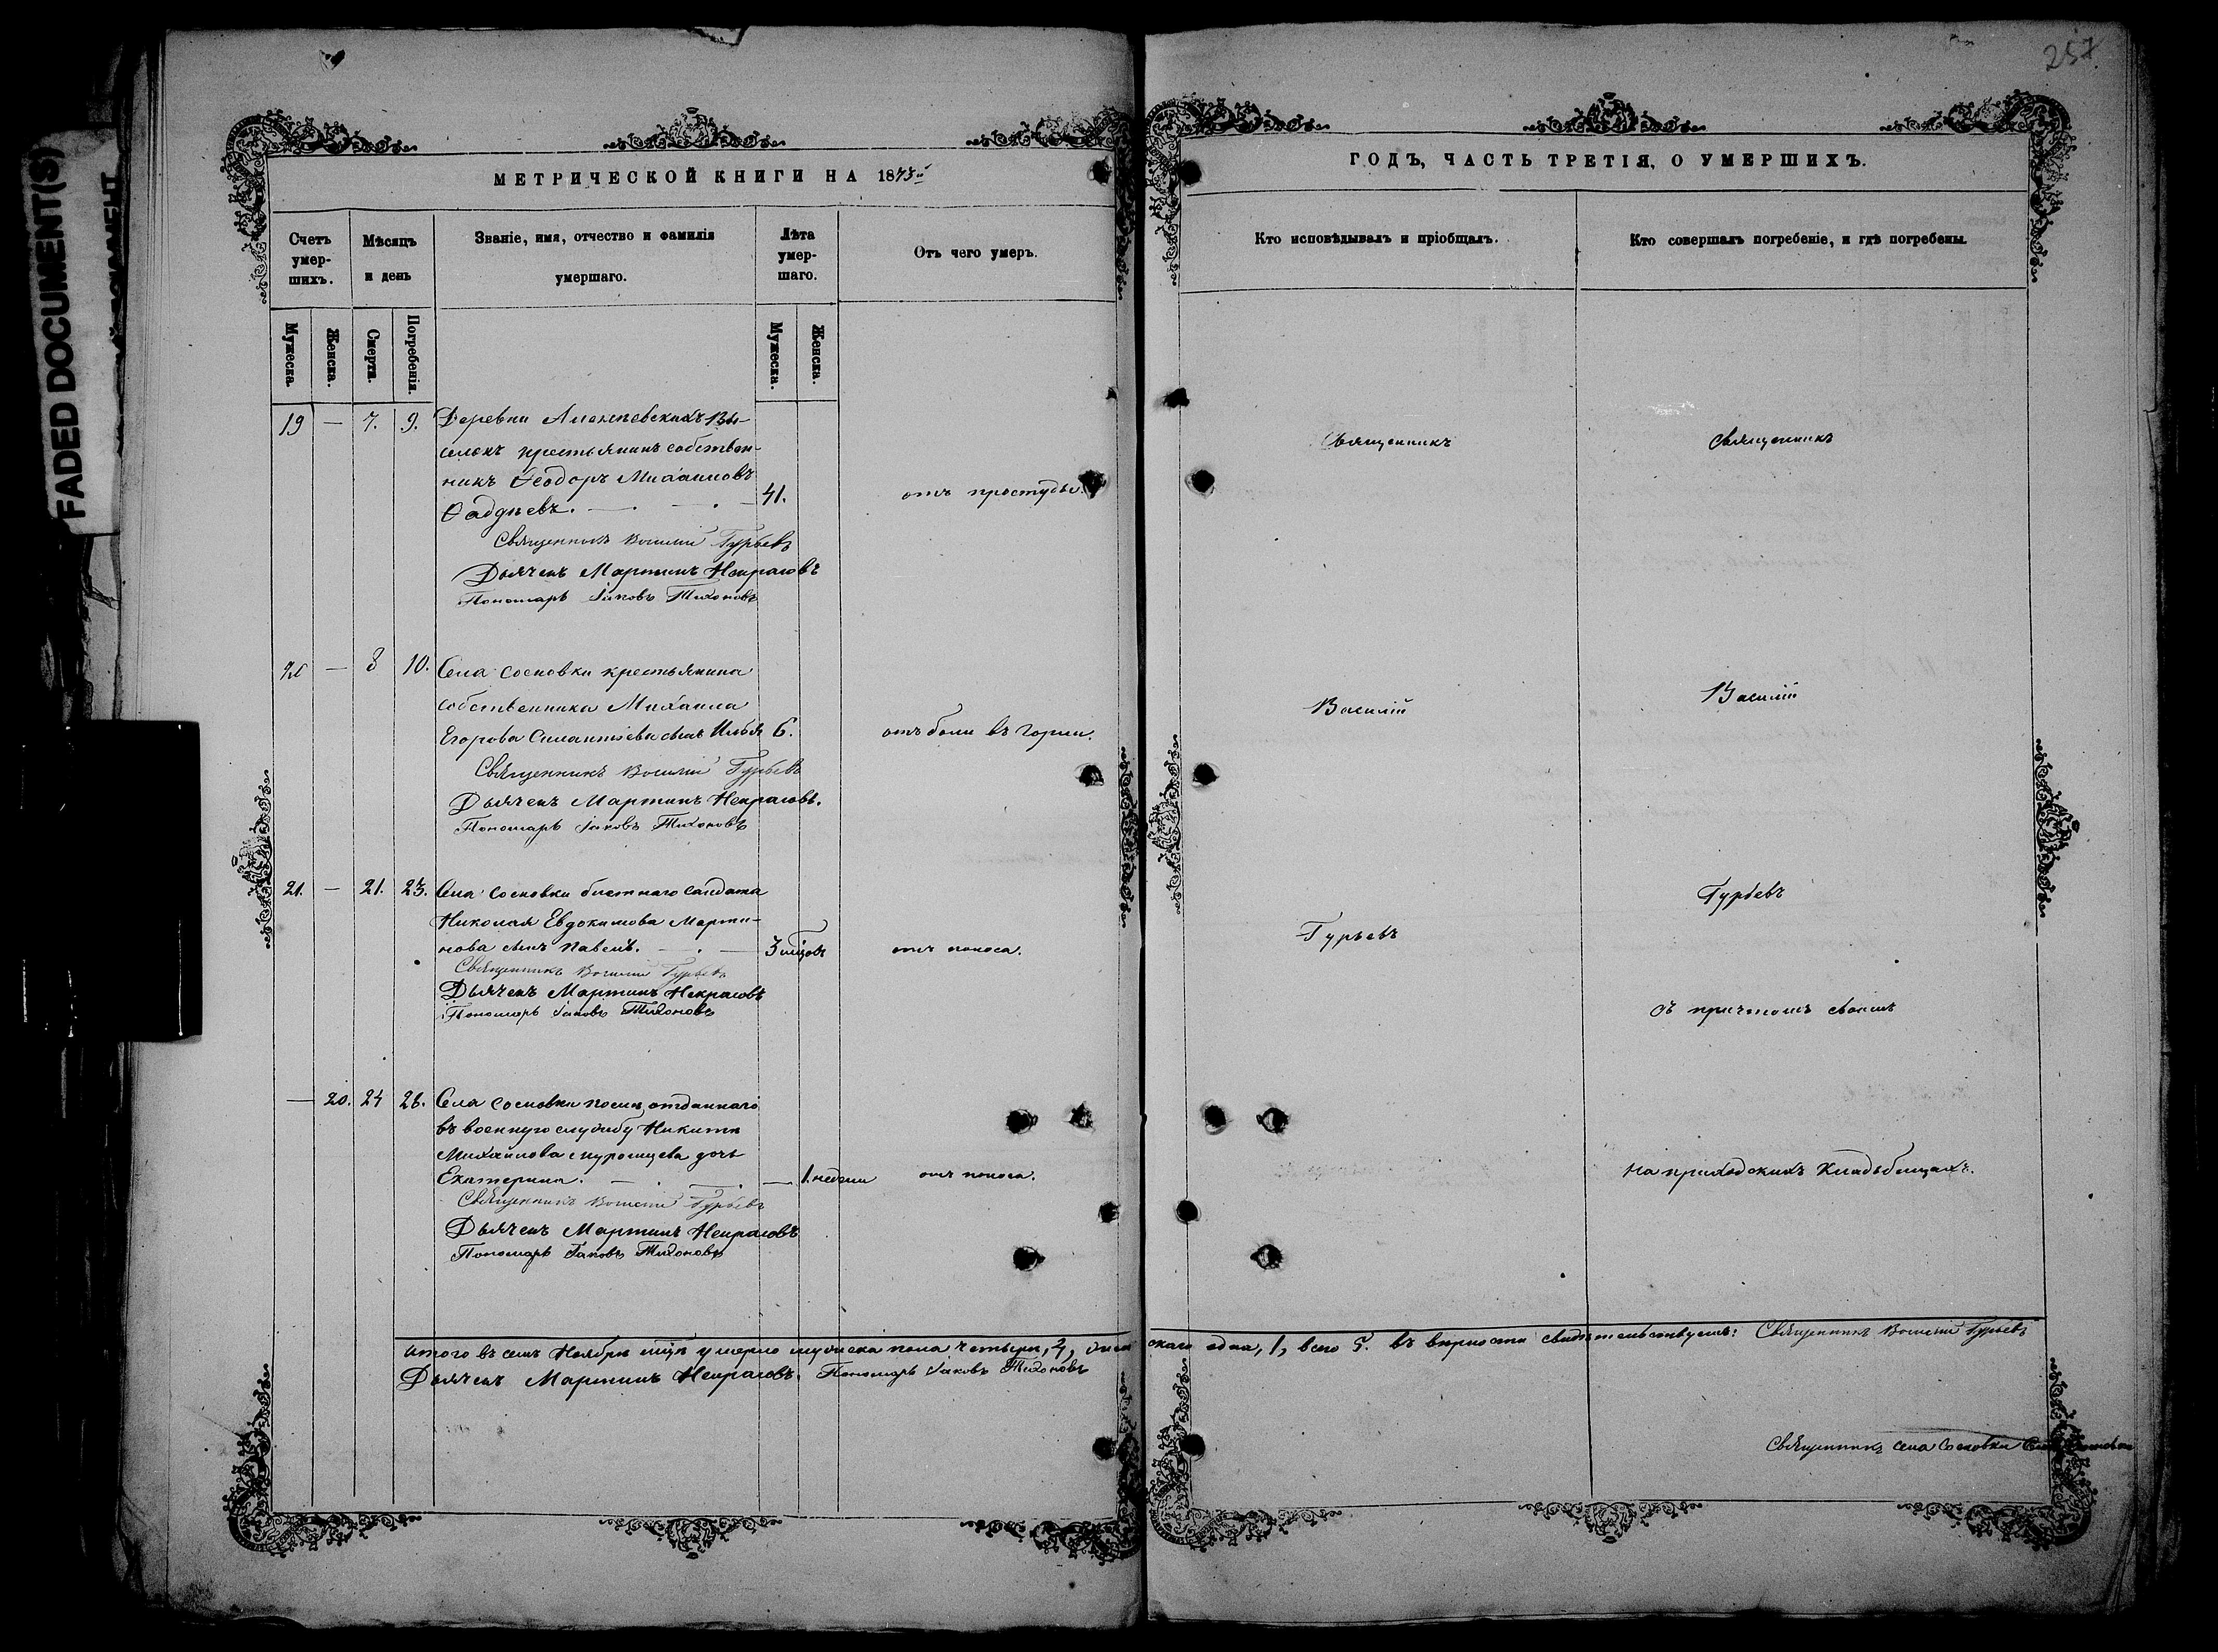 FADED DOCUMENT(S)
257.
МЕТРИЧЕСКОЙ КНИГИ НА 1873й
ГОДЪ, ЧАСТЬ ТРЕТІЯ, О УМЕРШИХЪ.
Счетъ умер-
шихъ.
Мѣсяцъ
и день
Званіе, имя, отчество и фамилія
умершаго.
Лѣта
умер-
шаго.
Отъ чего умеръ.
Кто исповѣдывалъ и пріобщалъ.
Кто совершалъ погребеніе, и гдѣ погребены.
Мужеска.
Женска.
Смерти.
Погребенія.
Мужеска.
Женска.
19 — 7. 9. Деревни Алексѣевскихъ Вы-
селокъ крестьянинъ собствен-
никъ Ѳеодоръ Михаиловъ
Ѳадѣевъ. — 41. отъ простуды.
Священникъ Василій Гурьевъ
Дьячекъ Мартинъ Некрасовъ
Пономарь Іаковъ Тихоновъ
20 — 8 10. Села Сосновки крестьянина
собственника Михаила
Егорова Силантіева сынъ Илья 6. отъ боли въ горлѣ.
Священникъ Василій Гурьевъ
Дьячекъ Мартинъ Некрасовъ.
Пономарь Іаковъ Тихоновъ
21. — 21. 23. Села Сосновки билетнаго солдата
Николая Евдокимова Марти-
нова сынъ Павелъ. — 3 мѣцовъ отъ поноса.
Священникъ Василій Гурьевъ
Дьячекъ Мартинъ Некрасовъ
Пономарь Іаковъ Тихоновъ
— 20. 24 26. Села Сосновки отданнаго
въ военную службу Никиты
Михайлова Муромцева дочь
Екатерина. — 1. недели отъ поноса.
Священникъ Василій Гурьевъ
Дьячекъ Мартинъ Некрасовъ
Пономарь Іаковъ Тихоновъ
Священникъ
Василій
Гурьевъ
Священникъ
Василій
Гурьевъ
съ причтомъ своимъ
на приходскихъ кладбищахъ.
Итого въ семъ Ноябрѣ мцѣ умерло мужеска пола четыри, 4, женскаго одна, 1, всего 5. въ вѣрности свидѣтельствуемъ: Священникъ Василій Гурьевъ
Дьячекъ Мартинъ Некрасовъ. Пономарь Іаковъ Тихоновъ
Священникъ села Сосновки